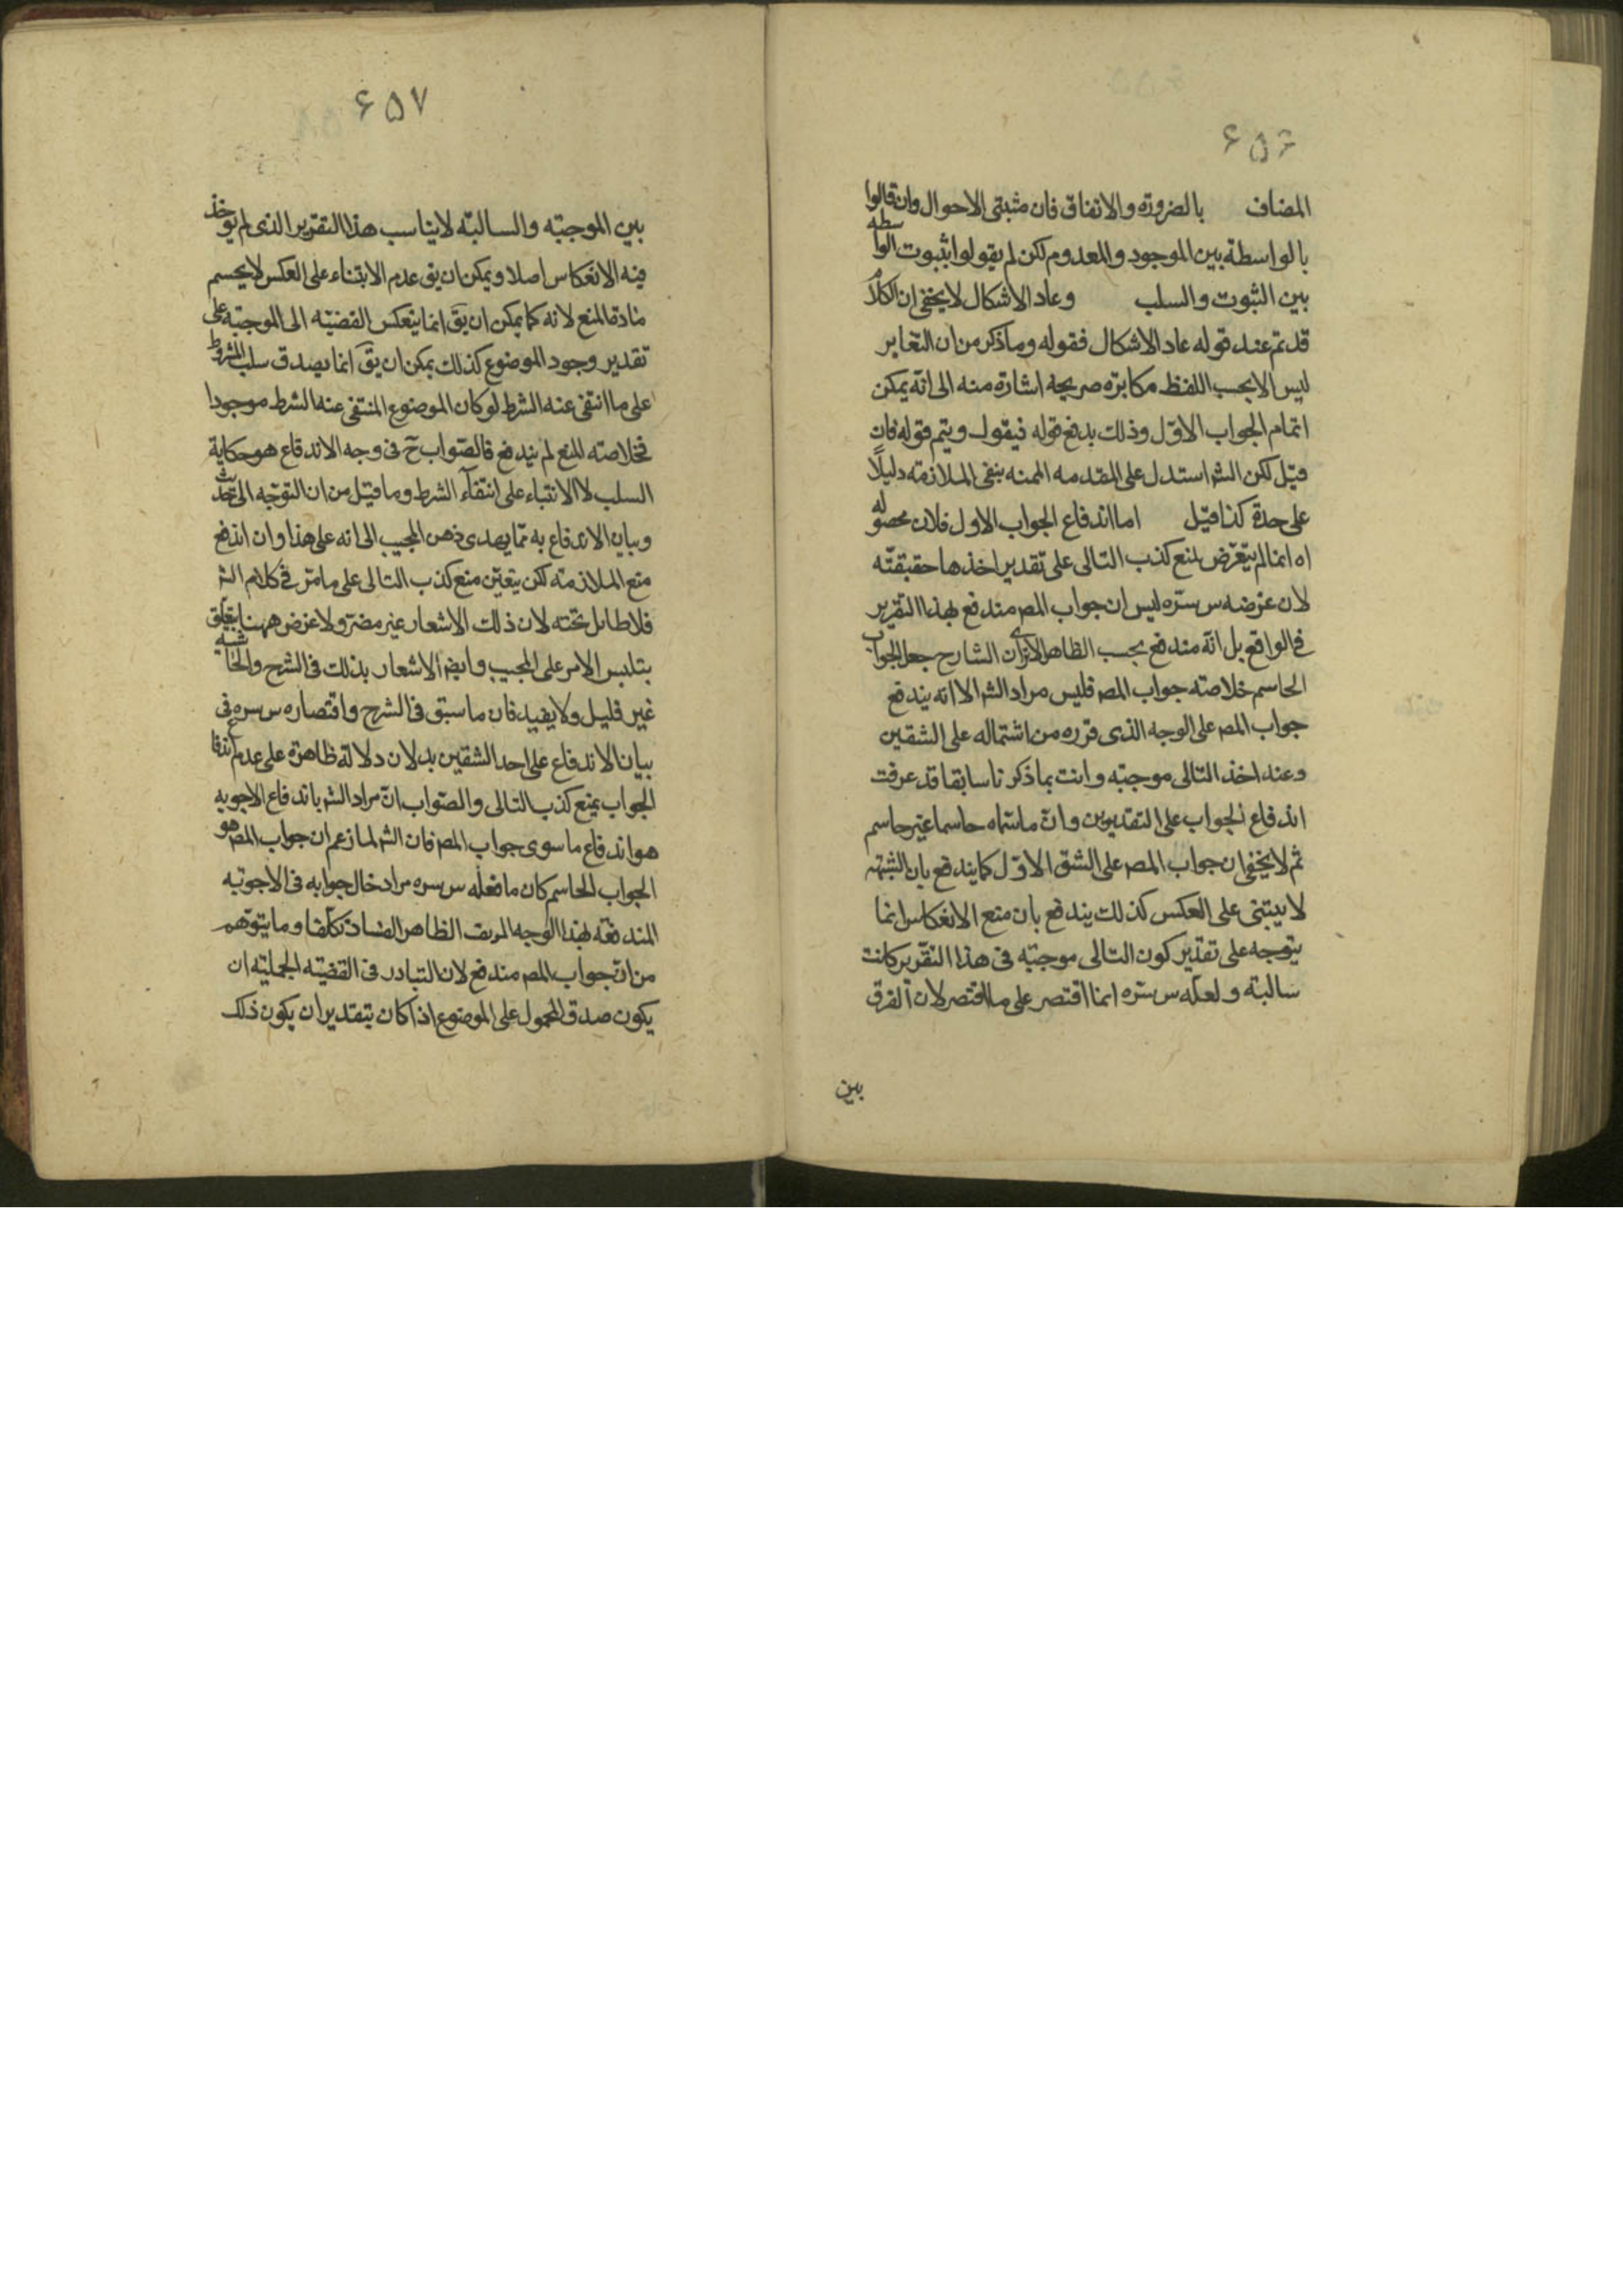 ۶۵۶
المضاف بالضرورة والاتفاق فان مثبتى الاحوال وان قالوا
بالواسطة بين الموجود والمعدوم لكن لم يقولوا بثبوت الواسطه
بين الثبوت والسلب وعاد الاشكال لا يخفى ان الكلام
قد تم عند قوله عاد الاشكال فقوله وما ذكر من ان التغاير
ليس الا بحسب اللفظ مكابرة صريحه اشارة منه الى انه يمكن
اتمام الجواب الاول وذلك بدفع قوله فيقول ويتم قوله فان
قيل لكن الشر استدل على المقدمه الممنه بنفى الملازمة دليلًا
على حدة كذا قيل اما اندفاع الجواب الاول فلان محصوله
اه انما لم يتعرض لمنع كذب التالى على تقدير اخذها حقيقته
لان غرضه س سره ليس ان جواب المصر مندفع بهذا التقرير
فى الواقع بل انه مندفع بحسب الظاهر الا ترى ان الشارح جعل الجواب
الحاسم خلاصته جواب المصر فليس مراد الشر الا انه يندفع
جواب المصر على الوجه الذى قرره من اشتماله على الشقين
وعند اخذ التالى موجبته وانت بما ذكرنا سابقا قد عرفت
اندفاع الجواب على التقديرين وان ما سماه حاسما غير حاسم
ثم لا يخفى ان جواب المصر على الشق الاول كما يندفع بان الشبهه
لا يبتنى على العكس كذلك يندفع بان منع الانعكاس انما
يتوجه على تقدير كون التالى موجبته فى هذا التقرير كانت
سالبته ولعله س سره انما اقتصر على ما اقتصر لان الفرق
بين
۶۵۷
بين الموجبته والسالبته لا يناسب هذا التقرير الذى لم يوخذ
فيه الانعكاس اصلا ويمكن ان يق عدم الابتناء على العكس لا يحسم
مادة المنع لانه كما يمكن ان يق انما ينعكس القضيته الى الموجبته على
تقدير وجود الموضوع كذلك يمكن ان يق انما يصدق سلب المشروط
على ما انتفى عنه الشرط لو كان الموضوع المنتفى عنه الشرط موجودا
فخلاصته المنع لم يندفع فالصواب ح فى وجه الاندفاع هو حكاية
السلب لا الابتناء على انتفاء الشرط وما قيل من ان التوجه الى تحدث
وبيان الاندفاع به مما يهدى ذهن المجيب الى انه على هذا وان اندفع
منع الملازمته لكن يتعين منع كذب التالى على ما مر فى كلام الشر
فلا طائل تحته لان ذلك الاشعار غير مضر ولا غرض ههنا يتعلق
بتلبس الامر على المجيب وايضا الاشعار بذلك فى الشرح والحاشيه
غير قليل ولا يفيد فان ما سبق فى الشرح واقتصاره س سره فى
بيان الاندفاع على احد الشقين يدلان دلالة ظاهرة على عدم اندفاع
الجواب بمنع كذب التالى والصواب ان مراد الشر باندفاع الاجوبه
هو اندفاع ما سوى جواب المصر فان الشر لما زعم ان جواب المصر هو
الجواب الحاسم كان ما فعله س سره مراد خال جوابه فى الاجوبه
المندفعه بهذا الوجه الظاهر الفساد تكلفا وما يتوهم
من ان جواب المصر مندفع لان التبادر فى القضيته الحمليته ان
يكون صدق المحمول على الموضوع اذا كان بتقدير ان يكون ذلك